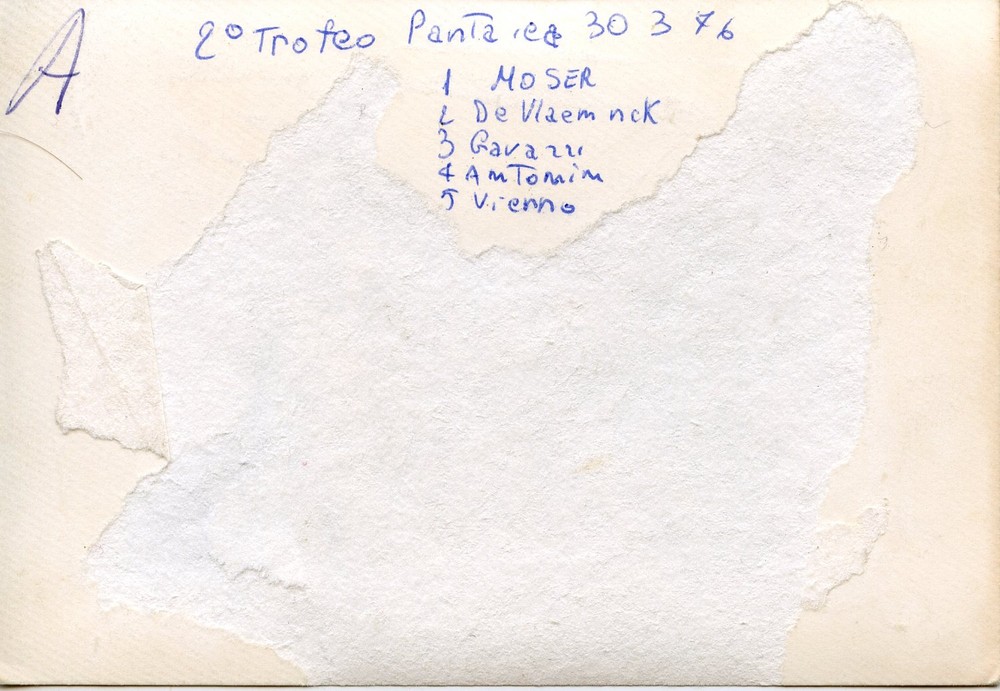 A
2° Trofeo Pantalica 30 3 76
1 MOSER
2 De Vlaeminck
3 Gavazzi
4 Antonini
5 Vianno